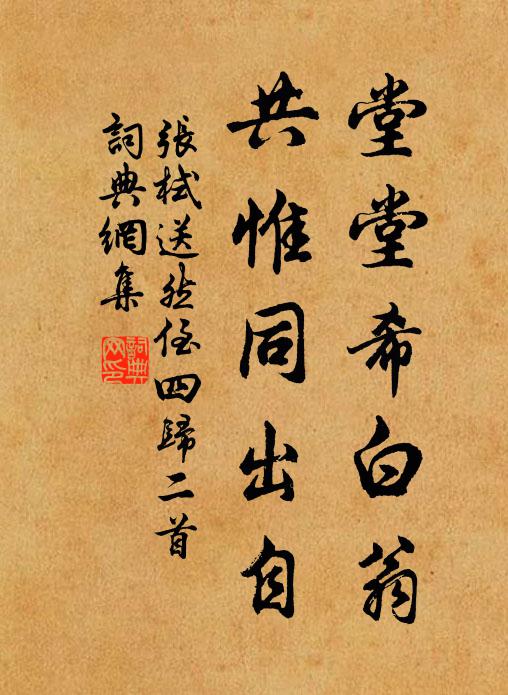 堂堂希白翁
共惟同出自
張栻送然侄四歸二首
詞典網集
詞典网印